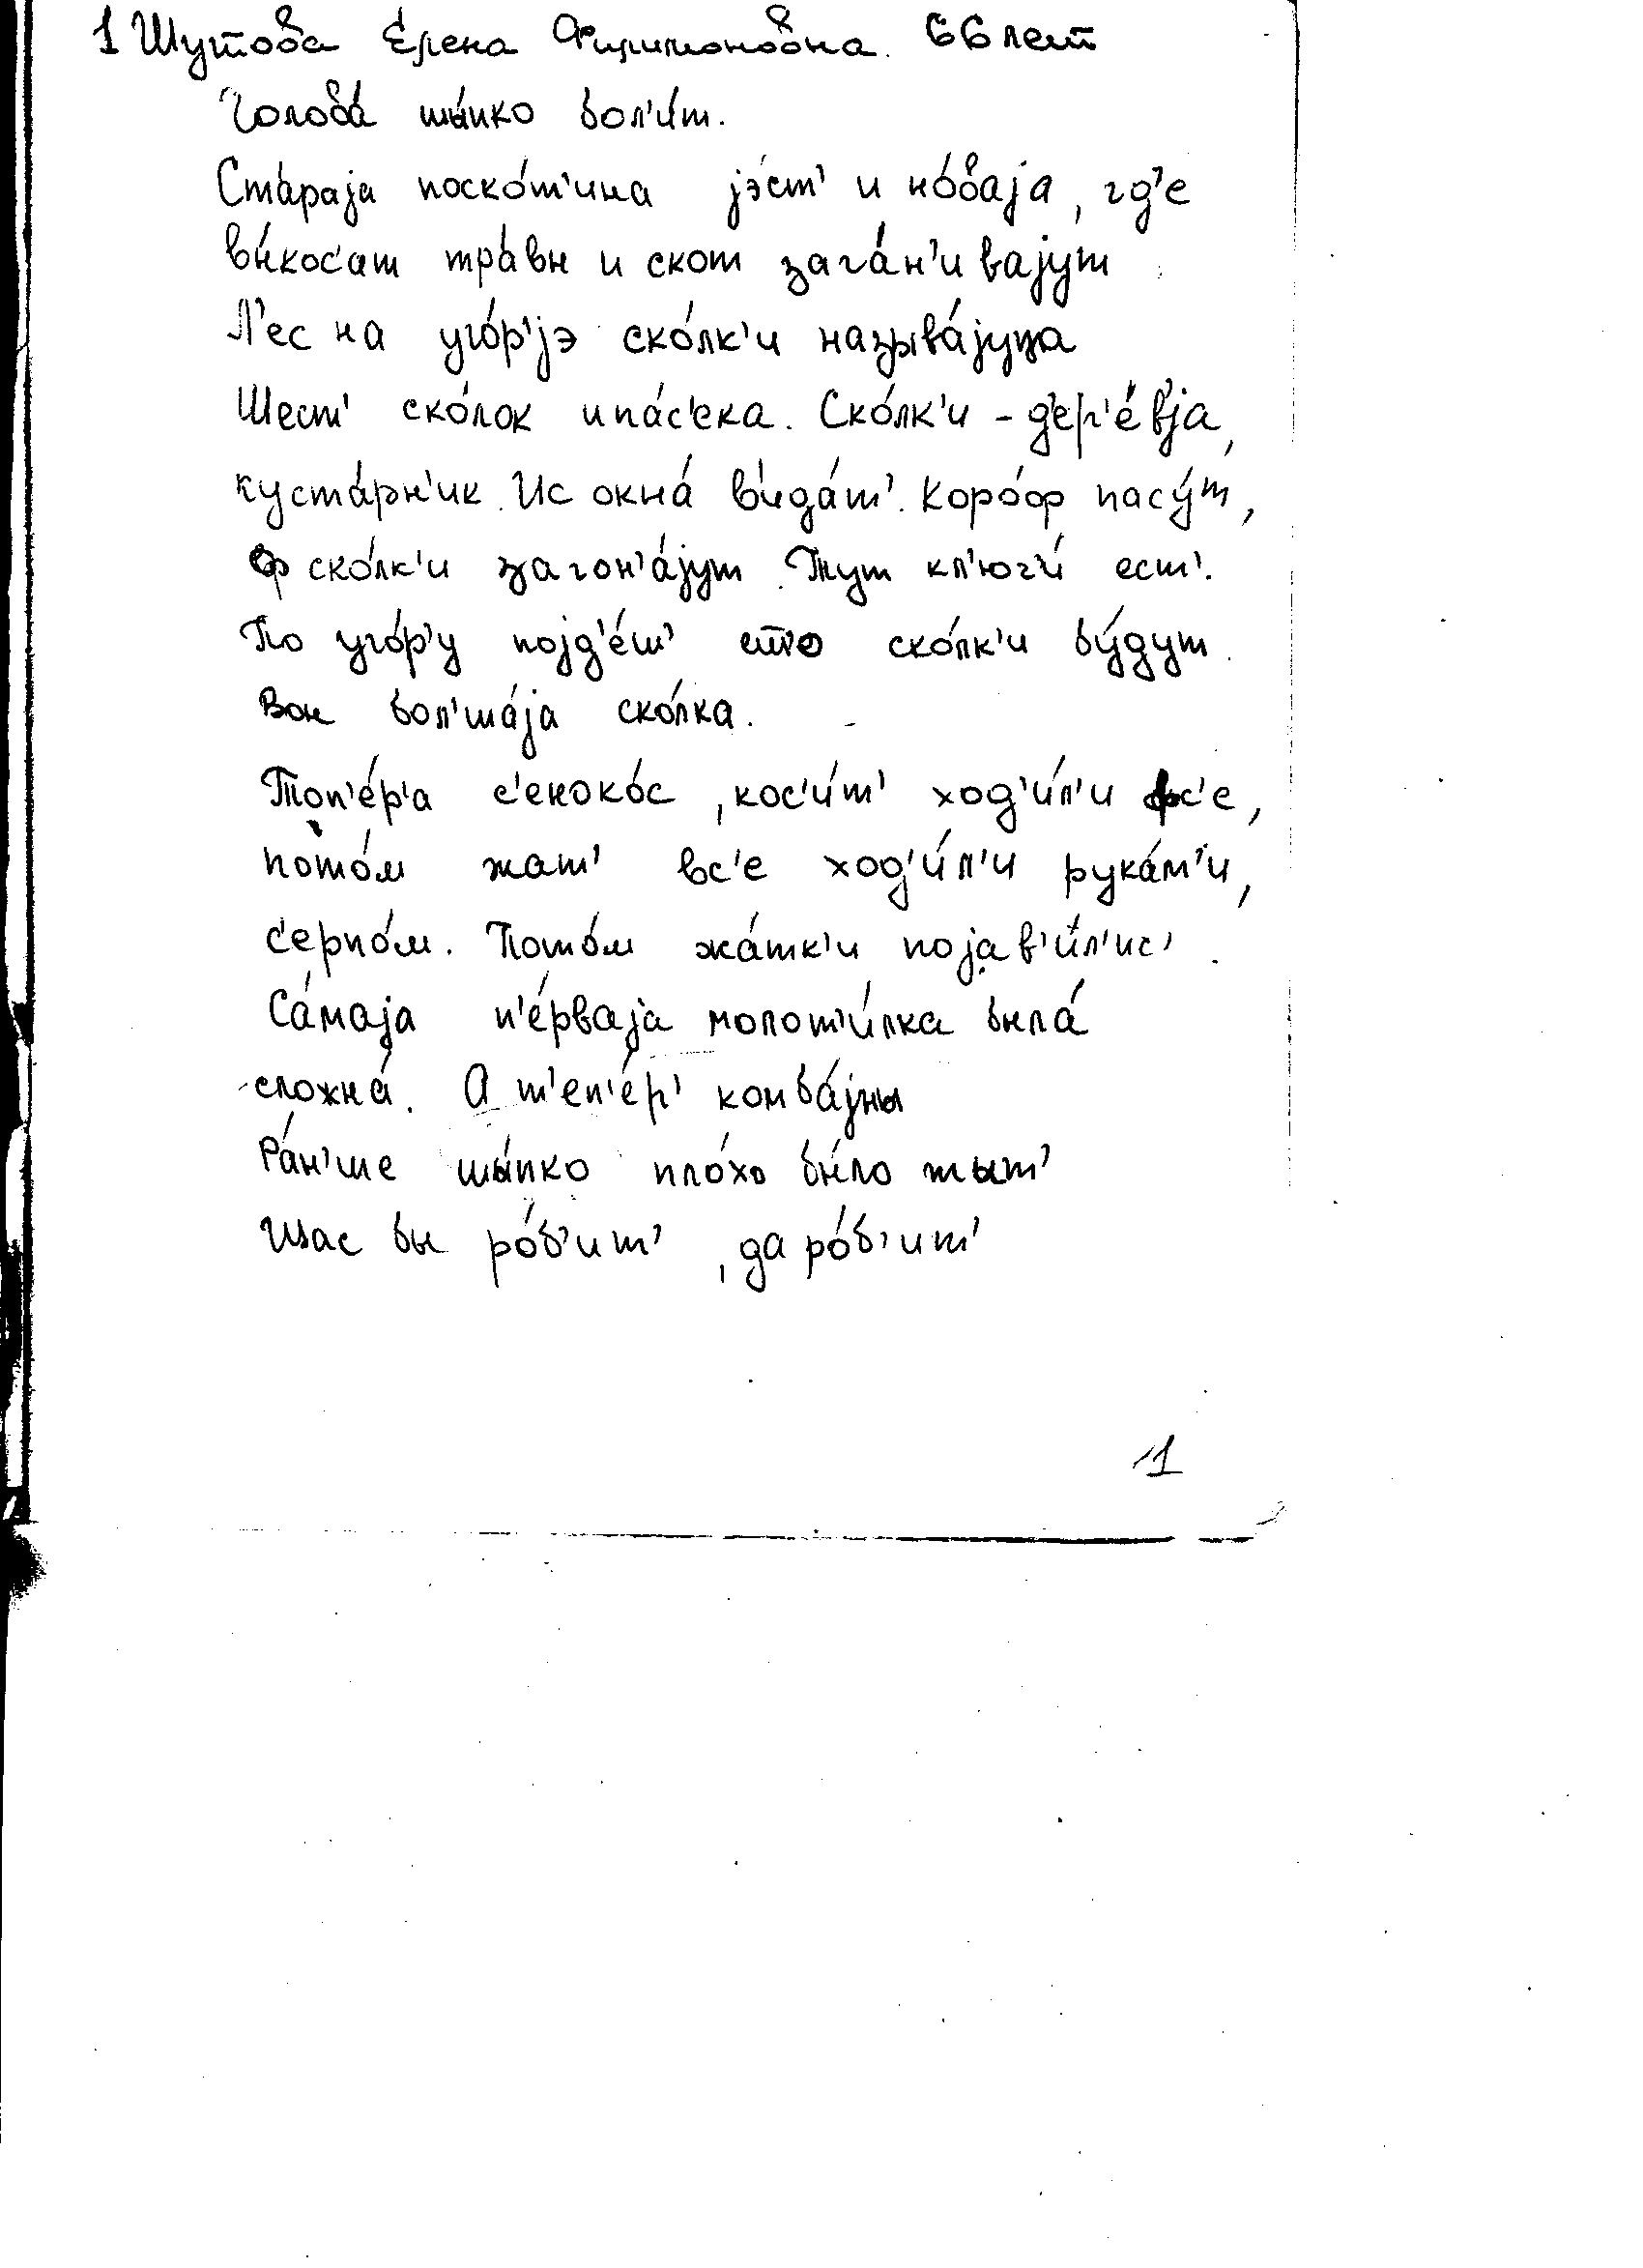 1 Шутова Елена Филимоновна. 66 лет
Голова́ шы́пко бол'и́т.
Ста́раjа поско́т'ина jэ́ст' и но́ваjа, гд'е
вы́кос'ат тра́вы и скот зага́н'иваjут
Л'ес на уго́р'jэ ско́лк'и называ́jуца
Шест' ско́лок и па́с'ека. Ско́лк'и - д'ер'е́вjа,
куста́рн'ик. Ис окна́ в'ида́т'. Коро́ф пасу́т,
Ф ско́лк'и загон'а́jут. Тут кл'юч'и́ ест'.
По уго́р'у поjд'е́ш' ско́лк'и бу́дут.
Вон бол'ша́jа ско́лка.
Топ'е́р'а с'еноко́с, кос'и́т' ход'и́л'и фс'е,
пото́м жат' вс'е ход'и́л'и рука́м'и,
с'ерпо́м. Пото́м жа́тк'и поjав'и́л'ис'.
Са́маjа п'е́рваjа молот'и́лка была́
сложна́. А т'еп'е́р' комба́jны
Ра́н'ше шы́пко пло́хо бы́ло жыт'
Щас бы ро́б'ит', да ро́б'ит'
1